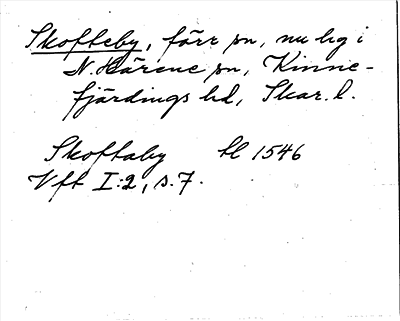 Skofteby, förr sn, nu lg i
N. Härene sn, Kinne-
fjärdings hd, Skar. l.
Skoftaby tl 1546
Vft I:2, s. 7.